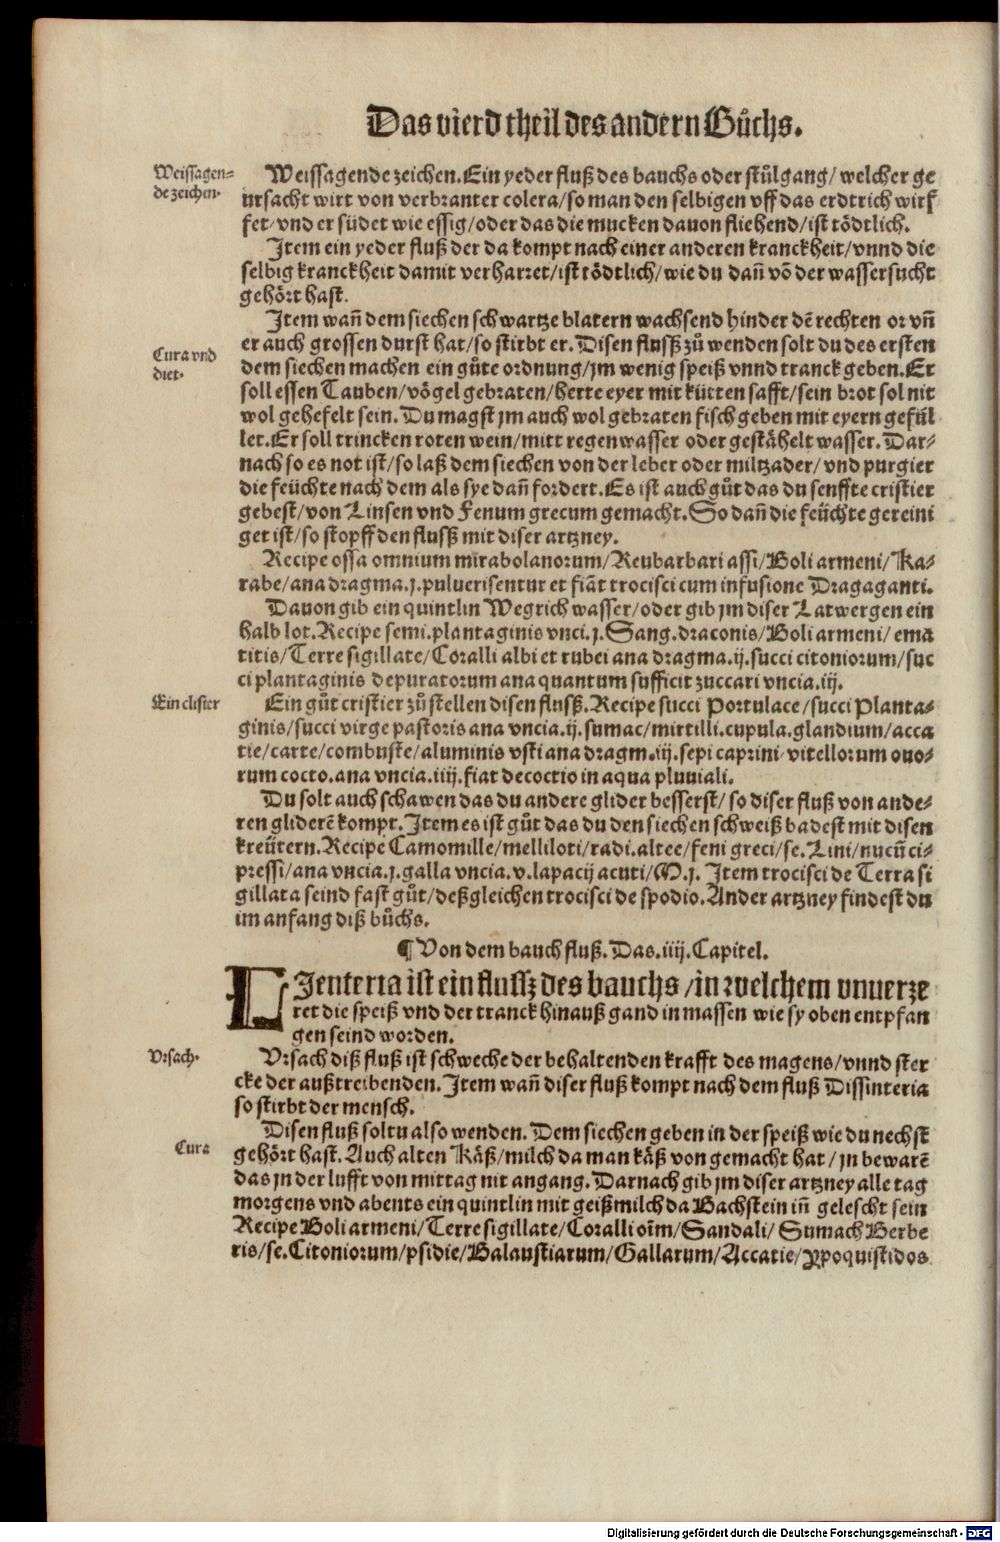 Das vierd theil des andern Bůchs.
Weissagen=
de zeichen.
Weissagende zeichen. Ein yeder fluß des bauchs oder stůlgang/ welcher ge
ursacht wirt von verbranter colera/so man den selbigen vff das erdtrich wirf
fet/vnd er südet wie essig/oder das die mucken dauon fliehend/ist tödtlich.
Item ein yeder fluß der da kompt nach einer anderen kranckheit/vnnd die
selbig kranckheit damit verharret/ist tödtlich/wie du dañ võ der wassersucht
gehört hast.
Item wañ dem siechen schwartze blatern wachsend hinder dẽ rechten or vñ
er auch grossen durst hat/so stirbt er. Disen flussz zů wenden solt du des ersten
Cura vnd
diet.
dem siechen machen ein gůte ordnung/jm wenig speiß vnnd tranck geben. Er
soll essen Tauben/vögel gebraten/herte eyer mit kütten safft/sein brot sol nit
wol gehefelt sein. Du magst jm auch wol gebraten fisch geben mit eyern gefül
let. Er soll trincken roten wein/mitt regenwasser oder gestähelt wasser. Dar=
nach so es not ist/so laß dem siechen von der leber oder miltzader/vnd purgier
die feüchte nach dem als sye dañ fordert. Es ist auch gůt das du senffte cristier
gebest/von Linsen vnd Fenum grecum gemacht. So dañ die feüchte gereini
get ist/so stopff den flussz mit diser artzney.
Recipe ossa omnium mirabolanorum/Reubarbari assi/Boli armeni/Ka=
rabe/ana dragma.j.puluerisentur et fiãt trocisci cum infusione Dragaganti.
Dauon gib ein quintlin Wegrich wasser/oder gib jm diser Latwergen ein
halb lot. Recipe semi.plantaginis vnci.j.Sang.draconis/Boli armeni/ema
titis/Terre sigillate/Coralli albi et rubei ana dragma.ij.succi citoniorum/suc
ci plantaginis depuratorum ana quantum sufficit zuccari vncia.iij.
Ein clister
Ein gůt cristier zů stellen disen flussz. Recipe succi Portulace/succi Planta=
ginis/succi virge pastoris ana vncia.ij.sumac/mirtilli.cupula.glandium/acca
tie/carte/combuste/aluminis vsti ana dragm.iij.sepi caprini/vitellorum ouo=
rum cocto.ana vncia.iiij.fiat decoctio in aqua pluuiali.
Du solt auch schawen das du andere glider besserst/so diser fluß von ande=
ren gliderẽ kompt. Item es ist gůt das du den siechen schweiß badest mit disen
kreütern. Recipe Camomille/melliloti/radi.altee/feni greci/se.Lini/nucũ ci=
pressi/ana vncia.j.galla vncia.v.lapacij acuti/M.j. Item trocisci de Terra si
gillata seind fast gůt/deßgleichen trocisci de spodio. Ander artzney findest du
im anfang diß bůchs.
¶ Von dem bauch fluß. Das.iiij.Capitel.
LIenteria ist ein flussz des bauchs/in welchem vnuerze
ret die speiß vnd der tranck hinauß gand in massen wie sy oben entpfan
gen seind worden.
Vrsach.
Vrsach diß fluß ist schweche der behaltenden krafft des magens/vnnd ster
cke der außtreibenden. Item wañ diser fluß kompt nach dem fluß Dissinteria
so stirbt der mensch.
Disen fluß soltu also wenden. Dem siechen geben in der speiß wie du nechst
Cura
gehört hast. Auch alten Käß/milch da man käß von gemacht hat/jn bewarẽ
das jn der lufft von mittag nit angang. Darnach gib jm diser artzney alle tag
morgens vnd abents ein quintlin mit geißmilch da Bachstein iñ gelescht sein
Recipe Boli armeni/Terre sigillate/Coralli oĩm/Sandali/ Sumach Berbe
ris/se.Citoniorum/psidie/Balaustiarum/Gallarum/Accatie/ypoquistidos
Digitalisierung gefördert durch die Deutsche Forschungsgemeinschaft - DFG